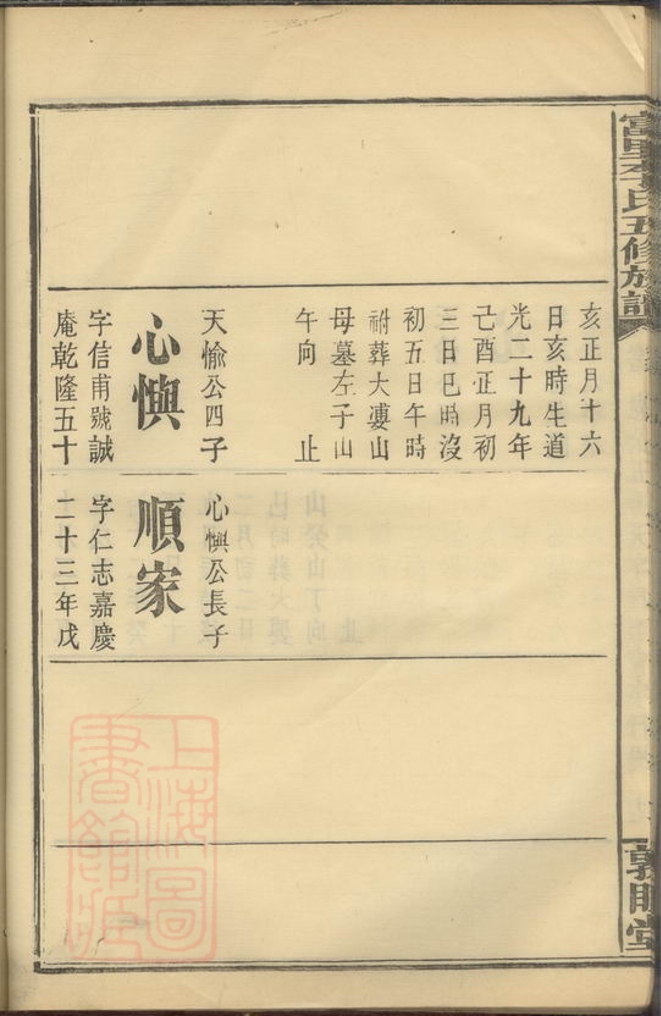 富里李氏五修族譜
亥正月十六
日亥時生道
光二十九年
己酉正月初
三日巳時沒
初五日午時
祔葬大婁山
母墓左子山
午向 止
天愉公四子
心懊
字信甫號誠
庵乾隆五十
心懊公長子
順家
字仁志嘉慶
二十三年戊
敦睦堂
上海圖
書館藏